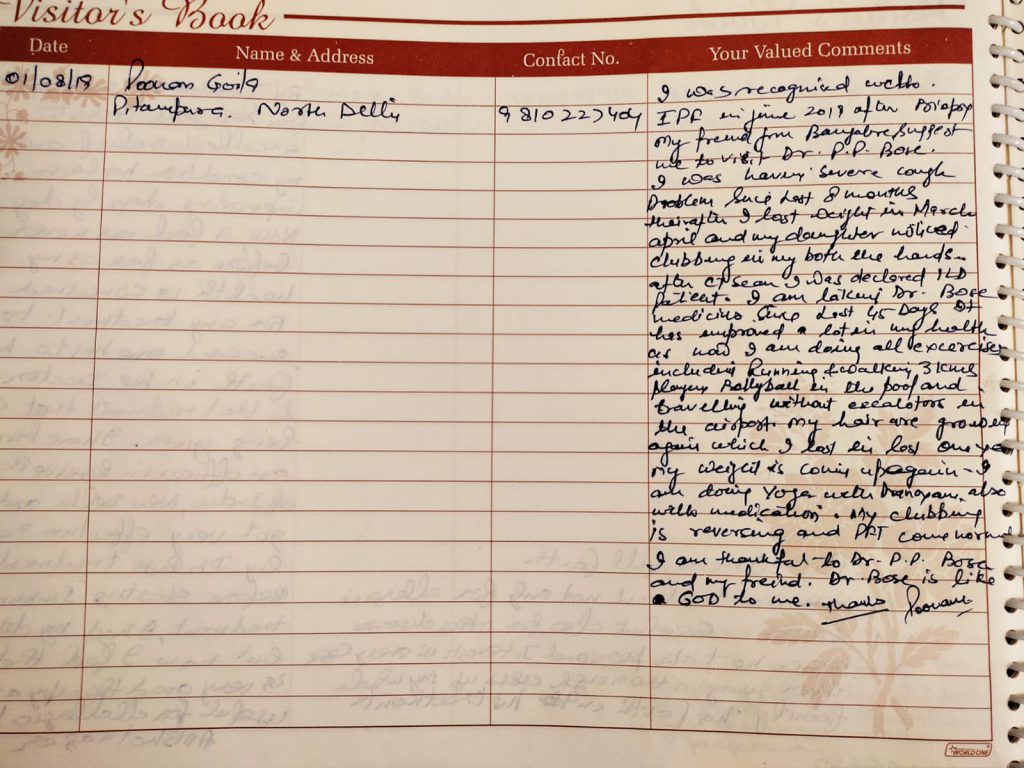 Visitor's Book
Date Name & Address Contact No. Your Valued Comments
01/08/19 Poonam Goila
Pitampura. North Delhi 9810227404
I was recognised with
IPF in june 2019 after Biopsy
My freind from Bangalore suggest
me to visit Dr. P.P. Bose.
I was having severe cough
Problem Since Last 8 months
therafter I lost weight in March
april and my daughter noticed
clubbing in my both the hands.
after CT scan I was declared ILD
patient. I am taking Dr. Bose
medicine Since Last 45 Days It
has improved a lot in my health
as now I am doing all excercises
including Running & walking 3 kms
playing Bollyball in the pool and
travelling without escalators in
the airport. My hair are growing
again which I lost in last one year
My weight is coming up again - I
am doing Yoga with also
with medication. My clubbing
is reversing and PFT come normal
I am thankful to Dr. P.P. Bose
and my freind. Dr. Bose is like
a GOD to me. Thanks Poonam
WORLDONE